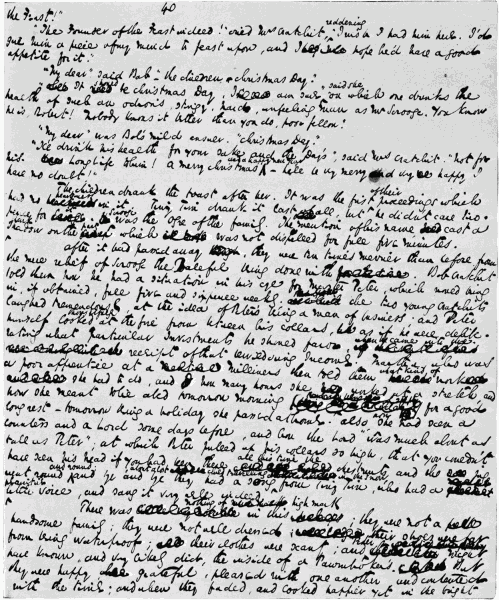 40
the Feast!"
reddening
"The Founder of the Feast indeed!" cried Mrs Cratchit, "I wish I had him here. I'd
give him a piece of my mind to feast upon, and I hope he'd have a good
appetite for it."
"My dear" said Bob: "the children: Christmas Day."
said she
"It should be Christmas Day, I am sure, on which one drinks the
health of such an odious, stingy, hard, unfeeling man as Mr Scrooge. You know
he is, Robert! Nobody knows it better than you do, poor fellow!"
"My dear", was Bob's mild answer. "Christmas Day."
"I'll drink his health for your sake and the Day's", said Mrs Cratchit. "not for
his. Long life to him! A merry Christmas and a happy new year – he'll be very merry and very happy I
have no doubt!"
The children drank the toast after her. It was the first of their proceedings which
had no heartiness in it. Tiny Tim drank it last of all, but he didn't care two-
pence for it. Scrooge was the Ogre of the family. The mention of his name cast a
shadow on the party which was not dispelled for full five minutes.
After it had passed away they were ten times merrier than before from
the mere relief of Scrooge the Baleful being done with. Bob Cratchit
told them how he had a situation in his eye for Master Peter, which would bring
in, if obtained, full five and sixpence weekly. The two young Cratchits
laughed tremendously at the idea of Peter's being a man of business; and Peter
himself looked thoughtfully at the fire from between his collars, as if he were delibe-
rating what particular investments he should favor when he came into the
receipt of that bewildering Income. Martha, who was
a poor apprentice at a milliners, then told them what kind of work
she had to do, and how many hours she worked at a stretch, and
how she meant to lie abed tomorrow morning for a good
long rest – tomorrow being a holiday she passed at home. Also how she had seen a
countess and a lord some days before, and how the lord "was much about as
tall as Peter"; at which Peter pulled up his collars so high, that you couldn't
have seen his head if you had been there. All this time the chestnuts and the jug
went round and round; and bye and bye they had a song from Tiny Tim, who had a plaintive
little voice, and sang it very well indeed.
There was nothing of high mark in this; they were not a
handsome family; they were not well dressed; their shoes were far
from being waterproof; their clothes were scanty; and Peter might
have known, and very likely did, the inside of a Pawnbroker's. But
they were happy, grateful, pleased with one another, and contented
with the time; and when they faded, and looked happier yet in the bright